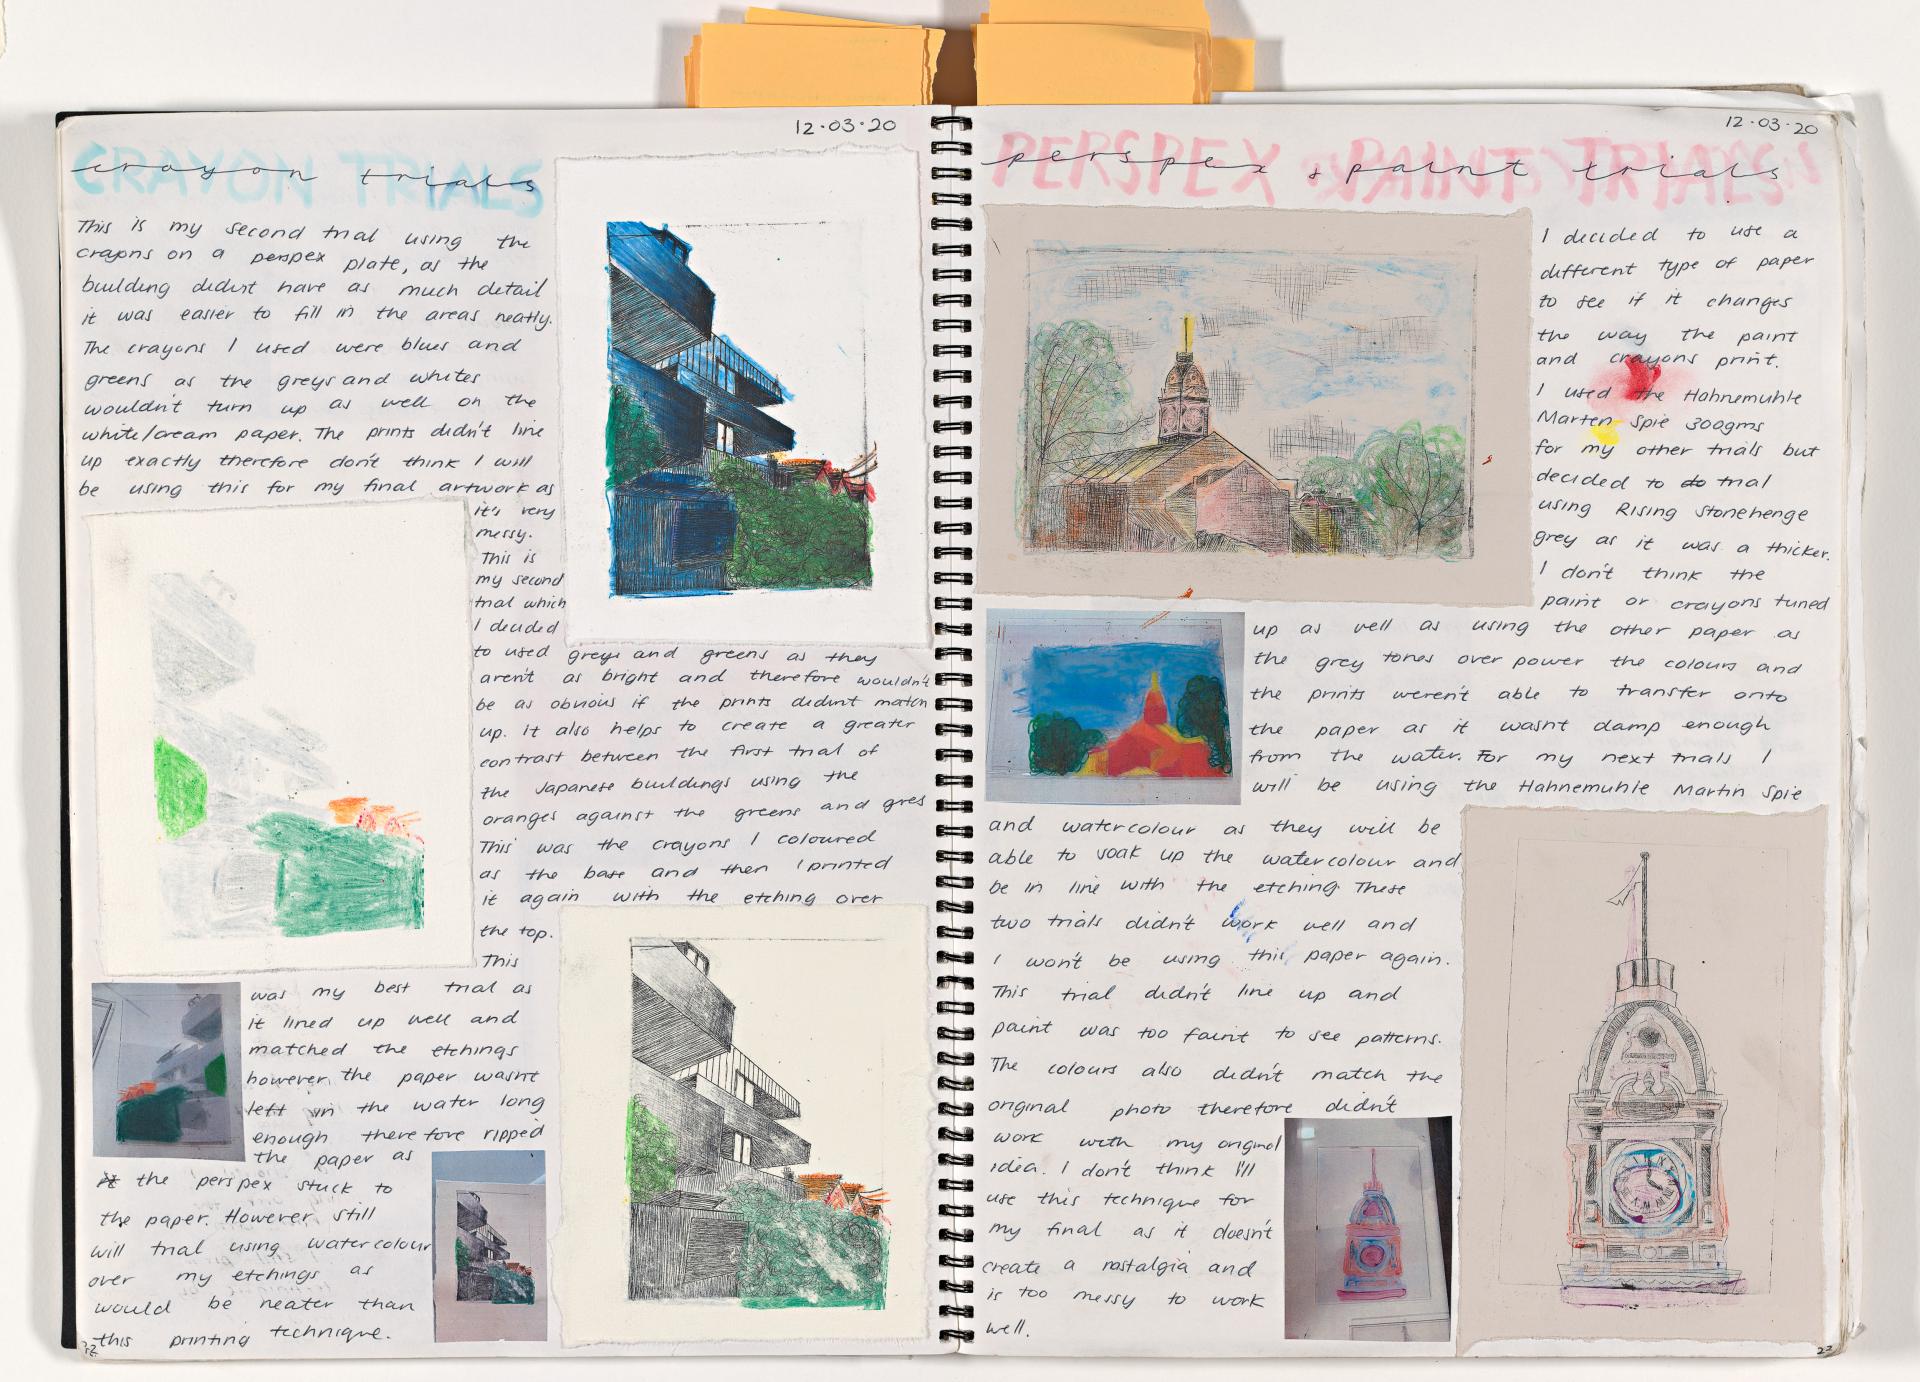 12.03.20
CRAYON TRIALS
crayon trials
This is my second trial using the
crayons on a perspex plate, as the
building didn't have as much detail
it was easier to fill in the areas neatly.
The crayons I used were blues and
greens as the greys and whites
wouldn't turn up as well on the
white/cream paper. The prints didn't line
up exactly therefore don't think I will
be using this for my final artwork as
it's very
messy.
This is
my second
trial which
I decided
to used greys and greens as they
aren't as bright and therefore wouldn't
be as obvious if the prints didnt match
up. It also helps to create a greater
contrast between the first trial of
the Japanese buildings using the
oranges against the greens and greys
This was the crayons I coloured
as the base and then I printed
it again with the etching over
the top.
This
was my best trial as
it lined up well and
matched the etchings
however the paper wasnt
left in the water long
enough therefore ripped
the paper as
it the perspex stuck to
the paper. However still
will trial using watercolour
over my etchings as
would be neater than
this printing technique.
22
12.03.20
PERSPEX & PAINT TRIALS
perspex & paint trials
I decided to use a
different type of paper
to see if it changes
the way the paint
and crayons print.
I used the Hahnemuhle
Marten Spie 300gms
for my other trials but
decided to do trial
using Rising Stonehenge
grey as it was a thicker.
I don't think the
paint or crayons tuned
up as well as using the other paper as
the grey tones over power the colours and
the prints weren't able to transfer onto
the paper as it wasnt damp enough
from the water. For my next trials I
will be using the Hahnemuhle Martin Spie
and watercolour as they will be
able to soak up the watercolour and
be in line with the etching. These
two trials didn't work well and
I won't be using this paper again.
This trial didn't line up and
paint was too faint to see patterns.
The colours also didn't match the
original photo therefore didn't
work with my original
idea. I don't think I'll
use this technique for
my final as it doesn't
create a nostalgia and
is too messy to work
well.
23